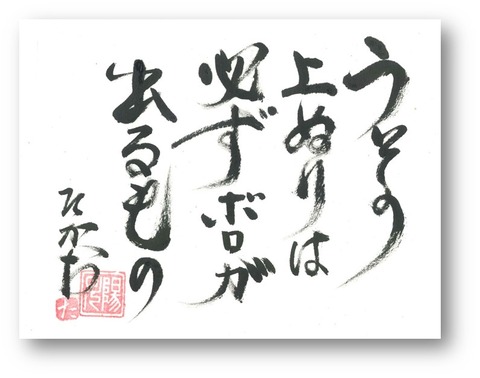 うその
上ぬりは
必ずボロが
出るもの
たかお